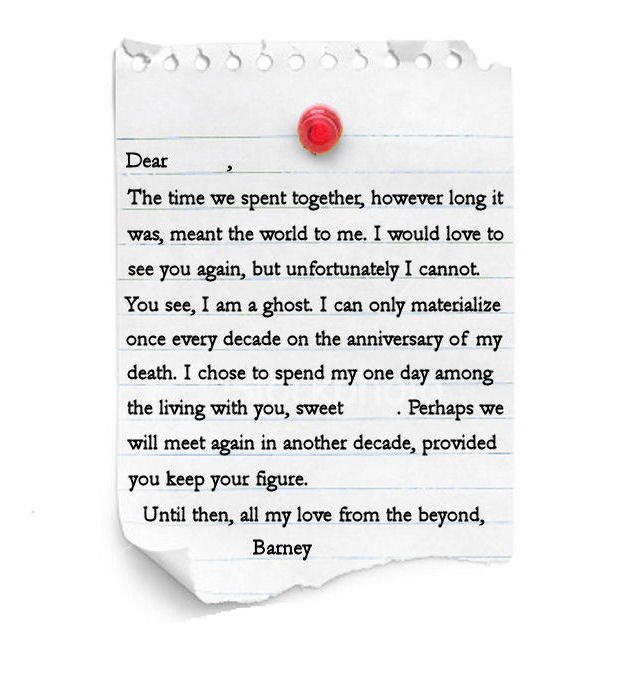 Dear ,
The time we spent together, however long it
was, meant the world to me. I would love to
see you again, but unfortunately I cannot.
You see, I am a ghost. I can only materialize
once every decade on the anniversary of my
death. I chose to spend my one day among
the living with you, sweet . Perhaps we
will meet again in another decade, provided
you keep your figure.
Until then, all my love from the beyond,
Barney